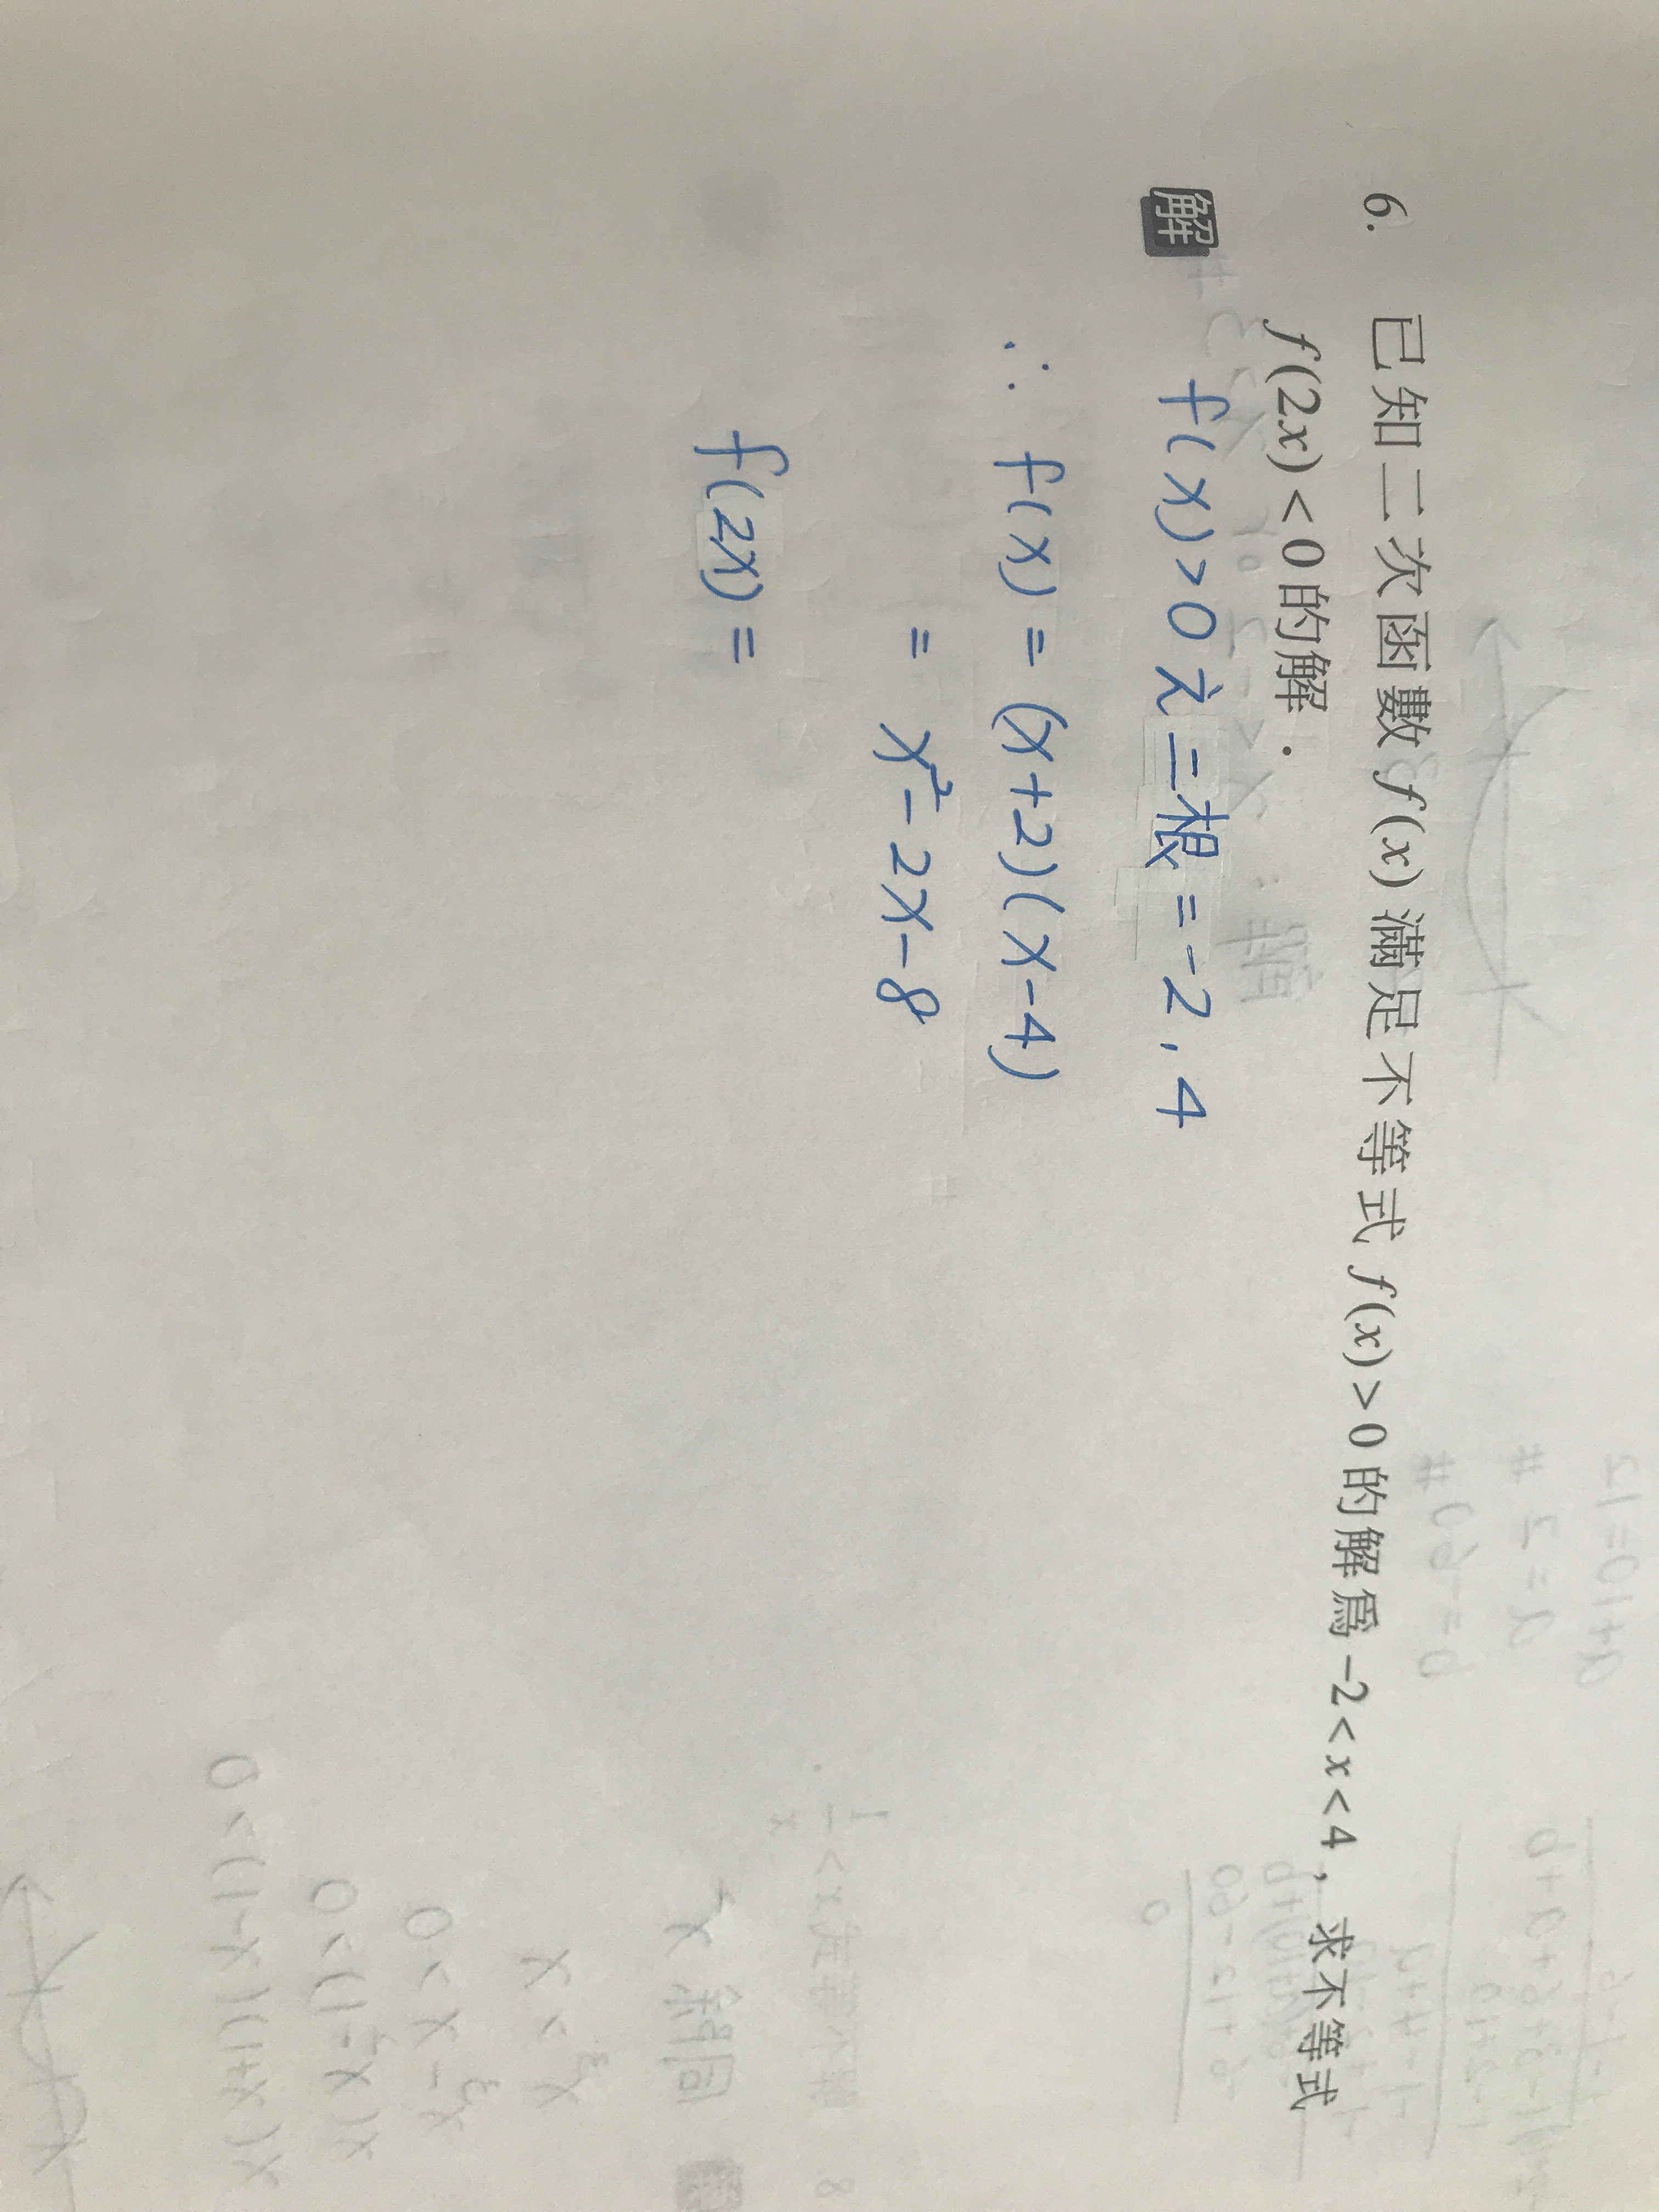 6. 已知二次函數 f(x) 滿足不等式 f(x)>0 的解為 -2<x<4，求不等式
f(2x)<0 的解．
解 f(x)>0 之二根=-2,4
∴ f(x) = (x+2)(x-4)
= x²-2x-8
f(2x) =